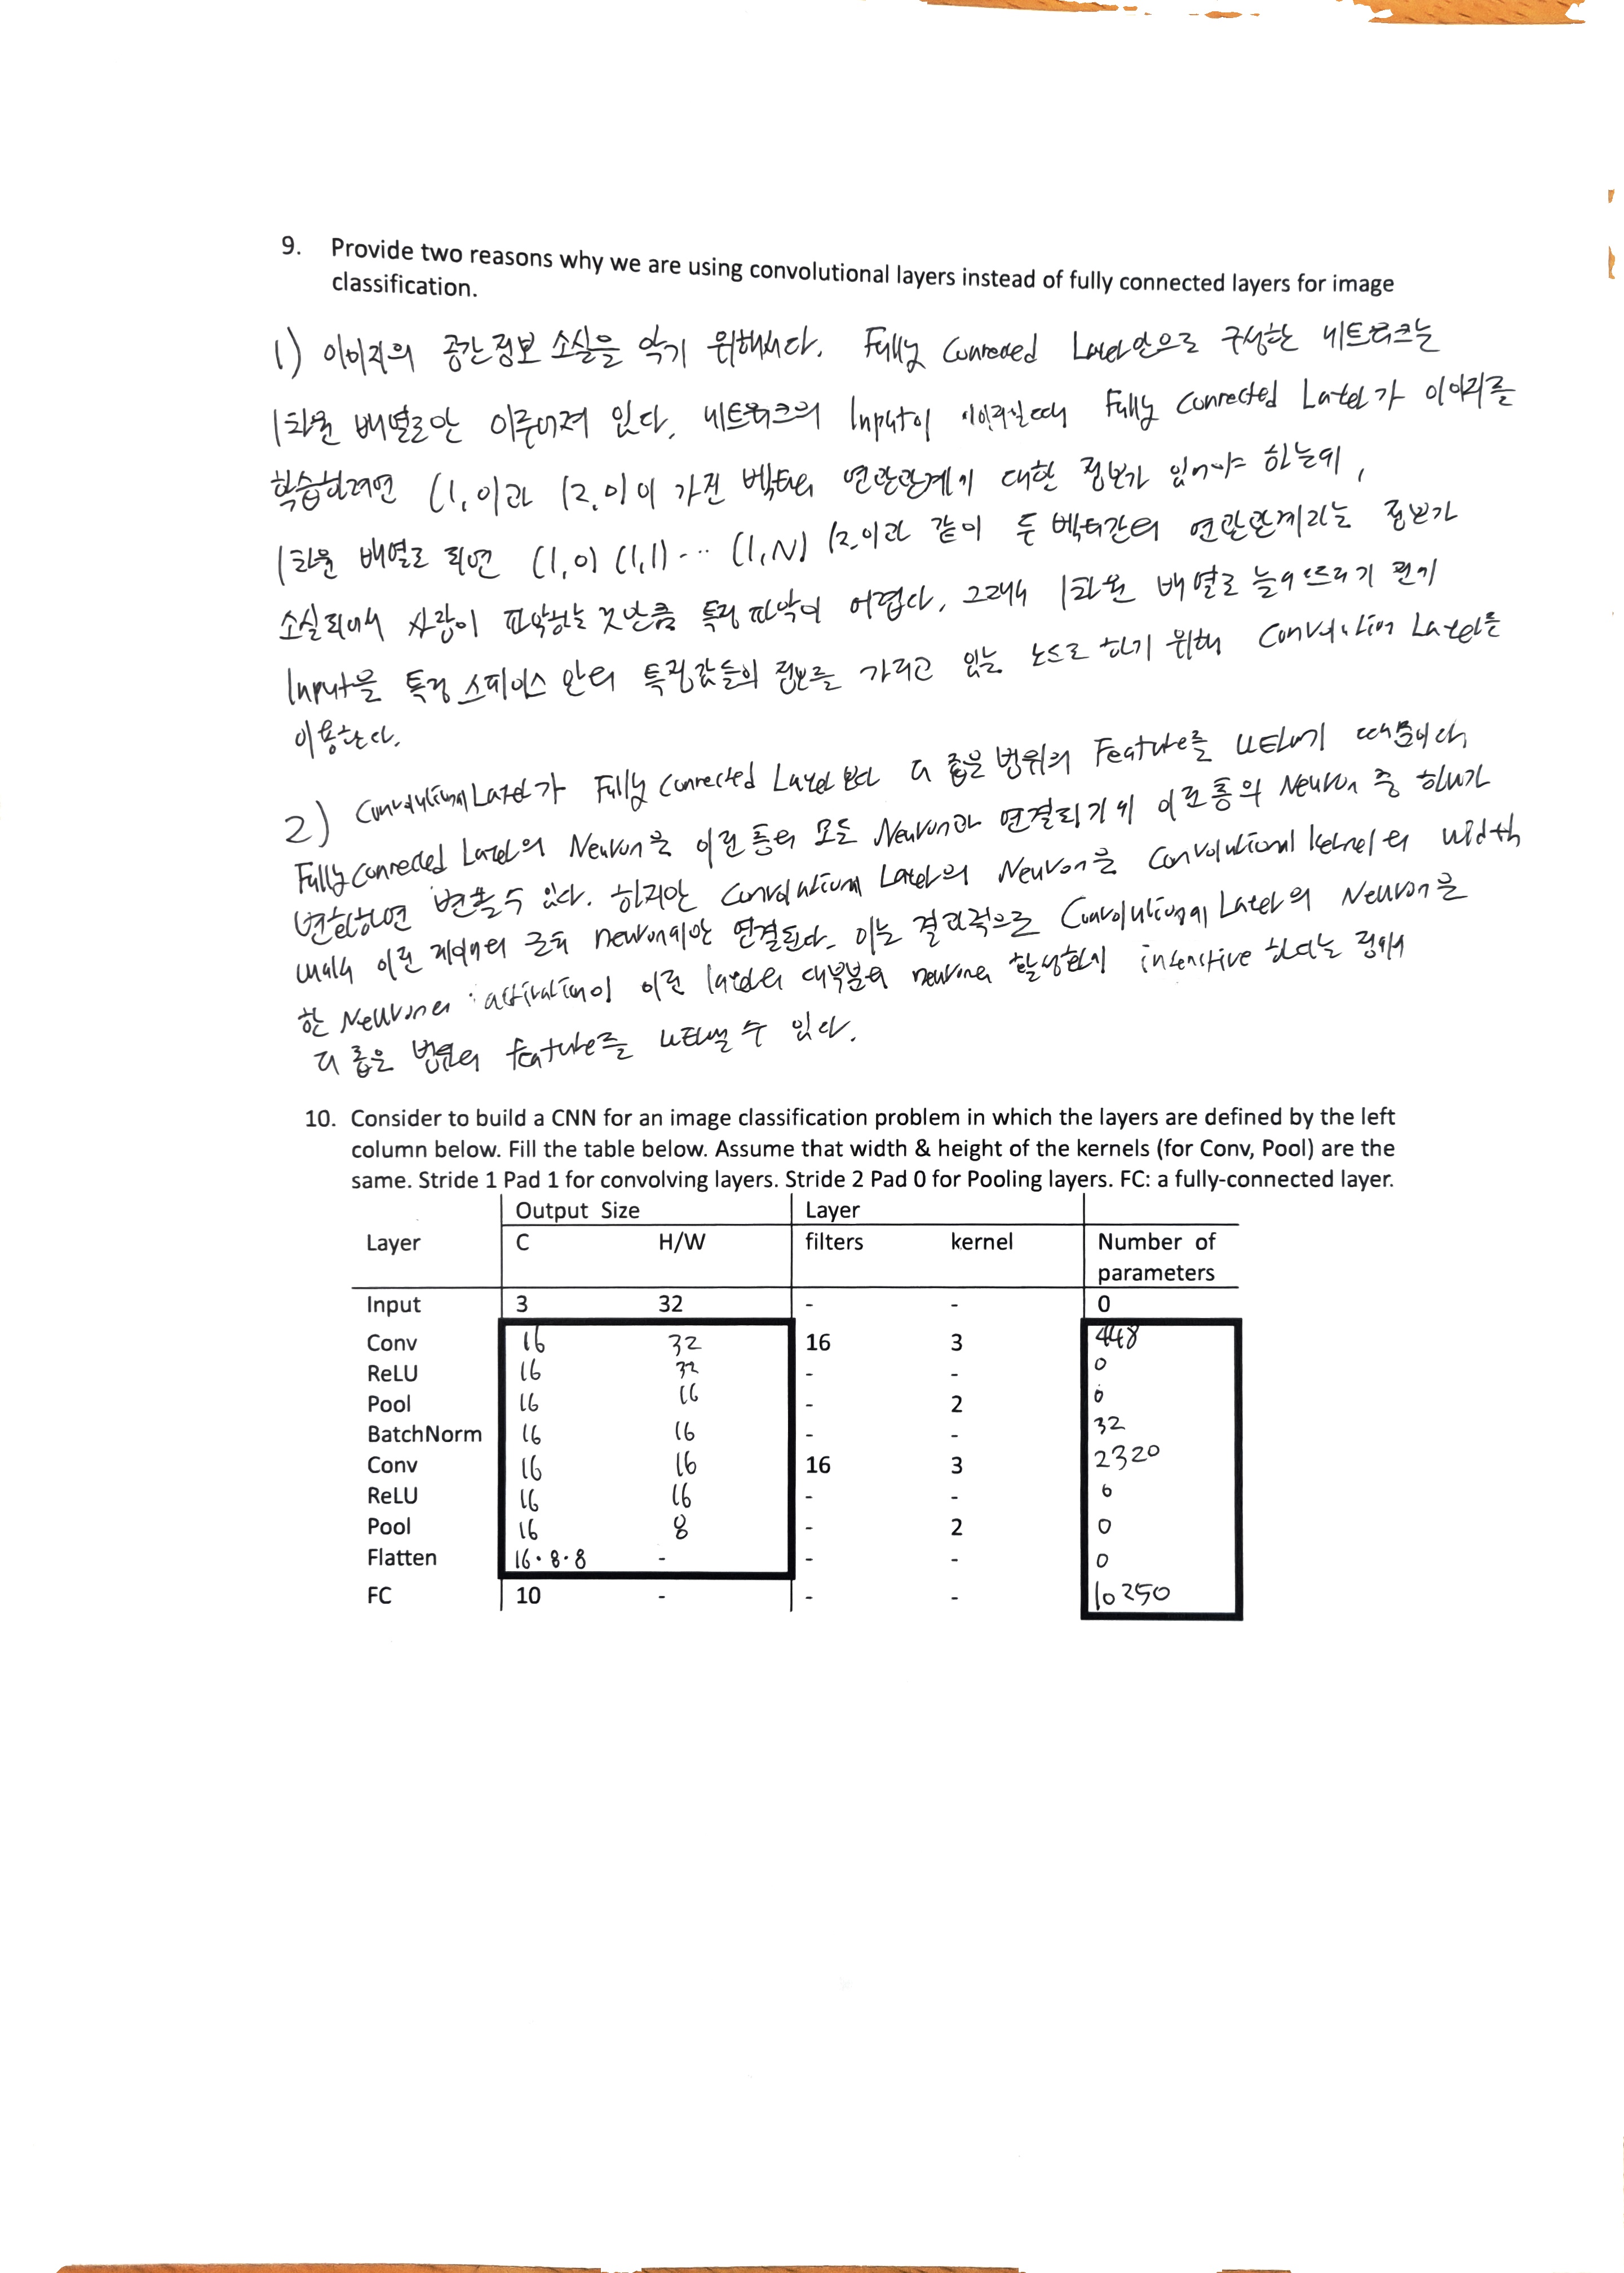 9. Provide two reasons why we are using convolutional layers instead of fully connected layers for image
classification.
1) 이미지의 공간정보 소실을 막기 위해서다. Fully Connected Layer만으로 구성한 네트워크는
1차원 배열로만 이루어져 있다. 네트워크의 Input이 이미지일때 Fully Connected Layer가 이미지를
학습하려면 (1,0)과 (2,0)이 가진 벡터의 연관관계에 대한 정보가 있어야 하는데,
1차원 배열로 되면 (1,0) (1,1) ... (1,N) (2,0)과 같이 두 벡터간의 연관관계라는 정보가
소실되어서 사람이 파악하는 것만큼 특징 파악이 어렵다. 그래서 1차원 배열로 늘어뜨리기 전에
Input을 특정 스페이스 안의 특징값들의 정보를 가지고 있는 노드로 하기 위해 Convolution Layer를
이용한다.
2) Convolutional Layer가 Fully Connected Layer 보다 더 좁은 범위의 Feature를 나타내기 때문이다.
Fully Connected Layer의 Neuron은 이전 층의 모든 Neuron과 연결되기에 이전 층의 Neuron 중 하나가
변화하면 변할 수 있다. 하지만 Convolutional Layer의 Neuron은 Convolutional kernel의 width
내에서 이전 레이어의 근처 neuron에만 연결된다. 이는 결과적으로 Convolutional Layer의 Neuron은
한 Neuron의 activation이 이전 layer의 대부분의 neuron의 활성화에 insensitive 하다는 점에서
더 좁은 범위의 feature를 나타낼 수 있다.
10. Consider to build a CNN for an image classification problem in which the layers are defined by the left
column below. Fill the table below. Assume that width & height of the kernels (for Conv, Pool) are the
same. Stride 1 Pad 1 for convolving layers. Stride 2 Pad 0 for Pooling layers. FC: a fully-connected layer.
Output Size Layer
Layer C H/W filters kernel Number of
parameters
Input 3 32 - - 0
Conv 16 32 16 3 448
ReLU 16 32 - - 0
Pool 16 16 - 2 0
BatchNorm 16 16 - - 32
Conv 16 16 16 3 2320
ReLU 16 16 - - 0
Pool 16 8 - 2 0
Flatten 16·8·8 - - - 0
FC 10 - - - 10250